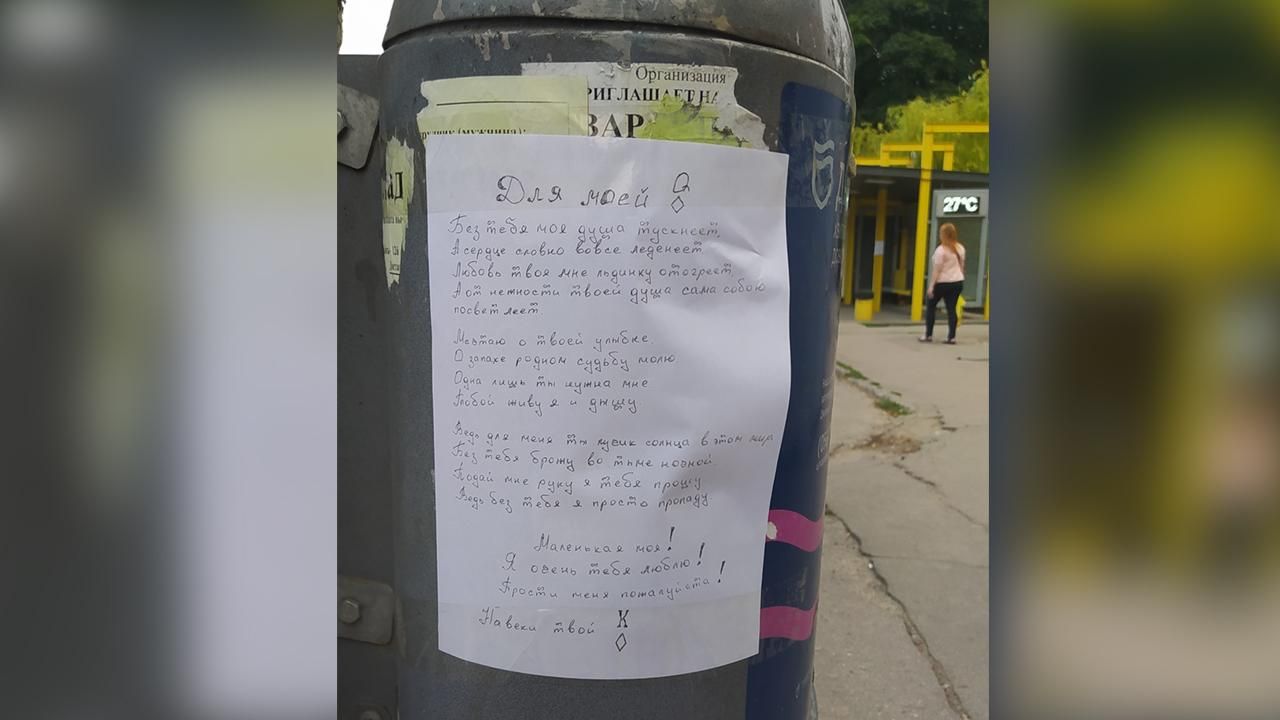 Организация
РИГЛАШАЕТ НА
ЗАР
(мужчина):
Для моей Q
◊
Без тебя моя душа тускнеет,
А сердце словно вовсе леденеет
Любовь твоя мне льдинку отогреет
А от нежности твоей душа сама собою
посветлеет
Мечтаю о твоей улыбке,
О запахе родном судьбу молю
Одна лишь ты нужна мне
Тобой живу я и дышу.
Ведь для меня ты лучик солнца в этом мире
Без тебя брожу во тьме ночной.
Подай мне руку я тебя прошу
Ведь без тебя я просто пропаду
Маленькая моя!
Я очень тебя люблю!
Прости меня пожалуйста!
Навеки твой K
◊
27°C